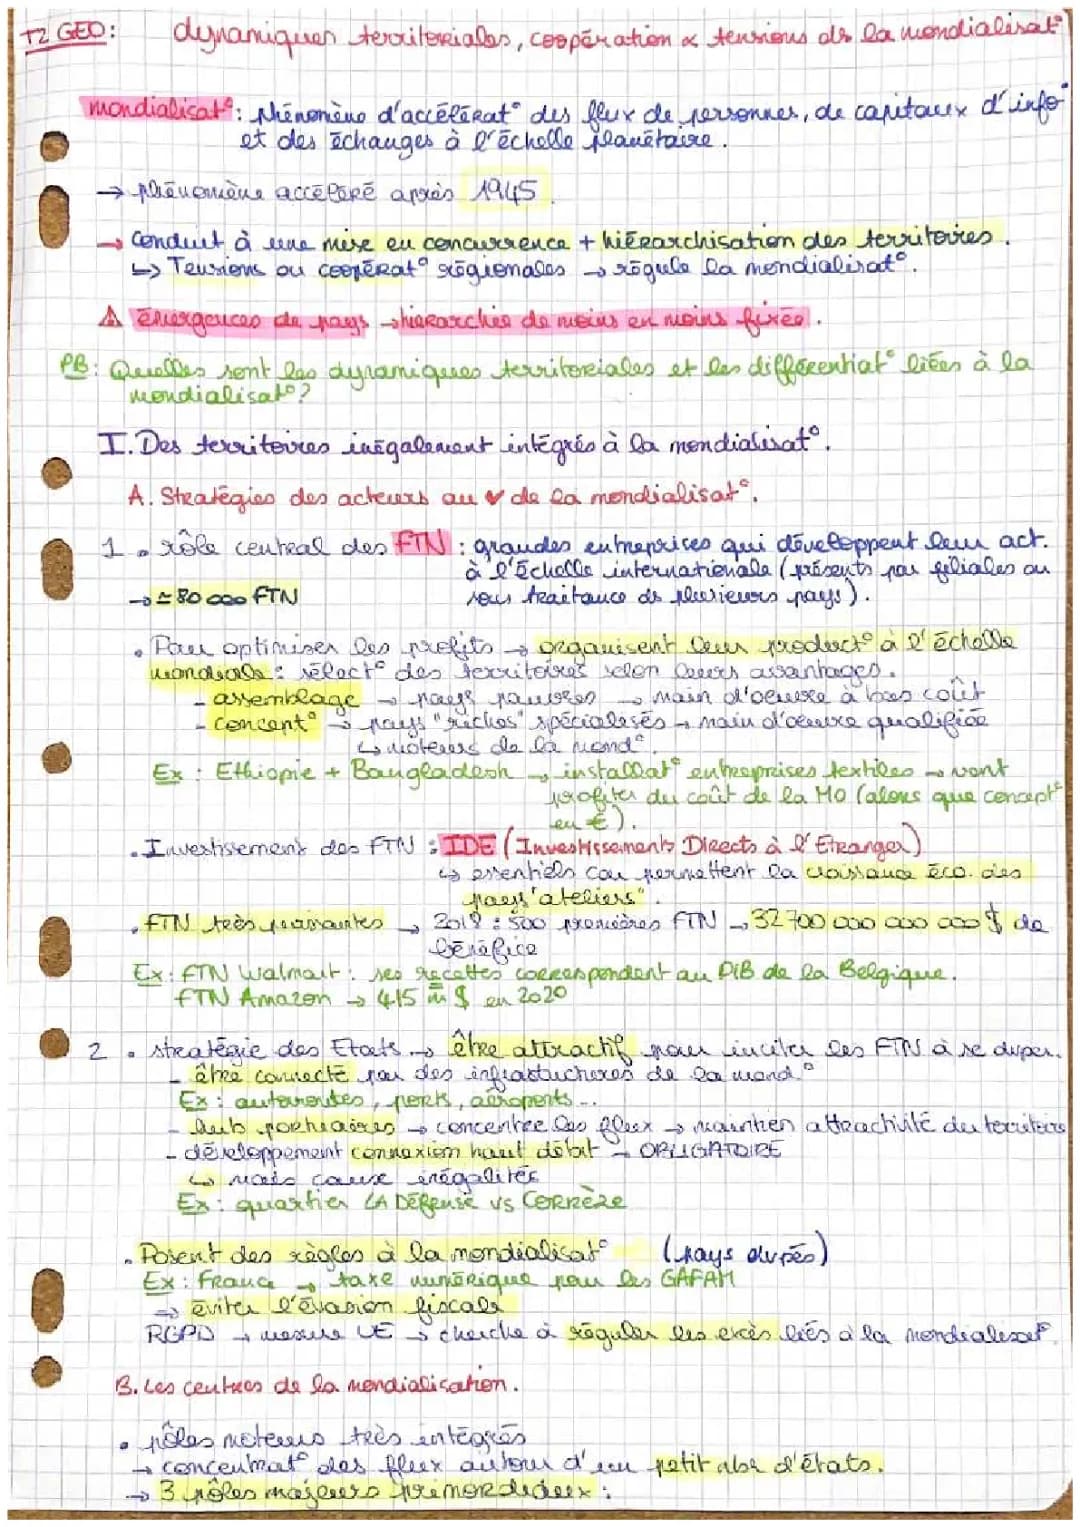 T2 GEO: dynamiques territoriales, coopération & tensions ds la mondialisat°
mondialisat°: Phénomène d'accélérat° des flux de personnes, de capitaux d'info°
et des échanges à l'échelle planétaire.
→ phénomène accéléré après 1945
→ Conduit à une mise en concurrence + hiérarchisation des territoires.
↳ Tensions ou coopérat° régionales → régule la mondialisat°.
⚠ émergences de pays → hierarchie de moins en moins fixée.
PB: Quelles sont les dynamiques territoriales et les différentiat° liées à la
mondialisat°?
I. Des territoires inégalement intégrés à la mondialisat°.
A. Stratégies des acteurs au ♥ de la mondialisat°.
1 • rôle central des FTN : grandes entreprises qui développent leur act.
à l'échelle internationale (présents par filiales ou
→ ≃ 80 000 FTN sous traitance ds plusieurs pays).
• Pour optimiser les profits → organisent leur product° à l'échelle
mondiale : sélect° des territoires selon leurs avantages.
- assemblage → pays pauvres → main d'oeuvre à bas coût
- concept° → pays "riches" spécialisés → main d'oeuvre qualifiée
↳ moteurs de la mond°.
Ex : Ethiopie + Bangladesh → installat° entreprises textiles → vont
profiter du coût de la MO (alors que concept°
en €).
• Investissement des FTN : IDE (Investissements Directs à l'Etranger)
↳ essentiels car permettent la croissance éco. des
pays "ateliers".
• FTN très puissantes → 2018 : 500 premières FTN → 32 700 000 000 000 $ de
bénéfice
Ex: FTN Walmart : ses recettes correspondent au PIB de la Belgique.
FTN Amazon → 415 m $ en 2020
2 • stratégie des Etats → être attractif pour inciter les FTN à se dvper.
- être connecté par des infrastuctures de la mond.°
Ex : autoroutes, ports, aéroports...
- hub portuaires → concentre les flux → maintien attractivité du territoire
- développement connexion haut débit → OBLIGATOIRE
↳ mais cause inégalités
Ex : quartier LA Défense vs Corrèze
• Posent des règles à la mondialisat° (pays dvpés)
Ex : France → taxe numérique pour les GAFAM
→ éviter l'évasion fiscale
RGPD → mesure UE → cherche à réguler les excès liés à la mondialisat°.
B. Les centres de la mondialisation.
• pôles moteurs très intégrés
→ concentrat° des flux autour d'un petit nbr d'états.
→ 3 pôles majeurs primordiaux :